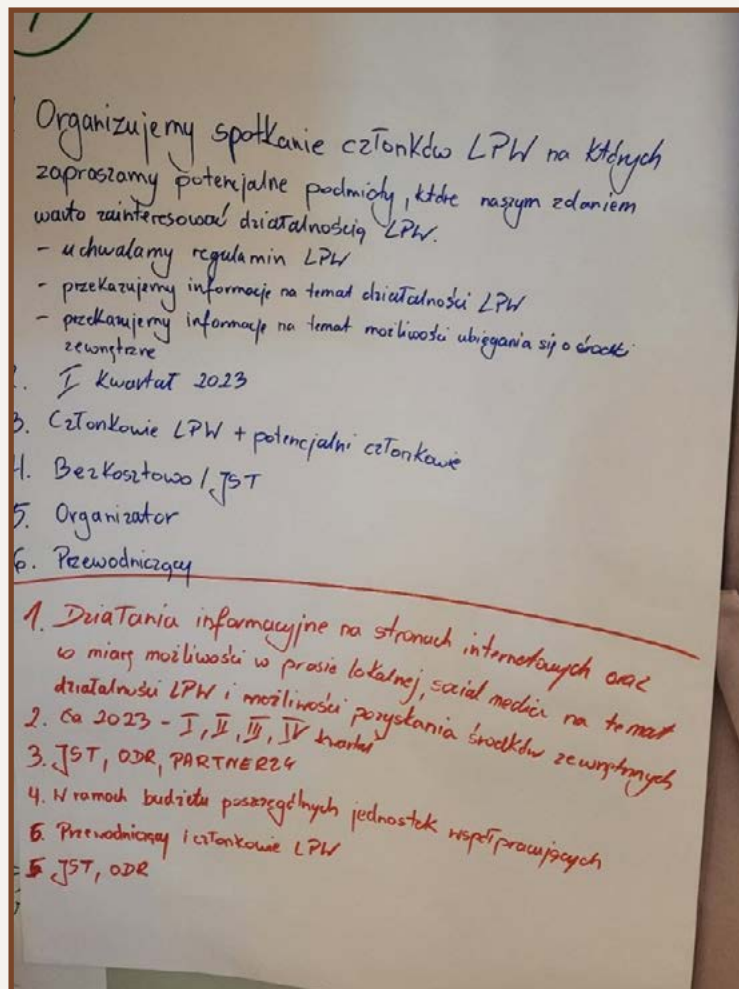 Organizujemy spotkanie członków LPW na których
zapraszamy potencjalne podmioty, które naszym zdaniem
warto zainteresować działalnością LPW.
- uchwalamy regulamin LPW
- przekazujemy informacje na temat działalności LPW
- przekazujemy informacje na temat możliwości ubiegania się o środki
zewnętrzne
2. I kwartał 2023
3. Członkowie LPW + potencjalni członkowie
4. Bezkosztowo / JST
5. Organizator
6. Przewodniczący
1. Działania informacyjne na stronach internetowych oraz
w miarę możliwości w prasie lokalnej, social media na temat
działalności LPW i możliwości pozyskania środków zewnętrznych
2. 2023 - I, II, III, IV kwartał
3. JST, ODR, PARTNERZY
4. W ramach budżetu poszczególnych jednostek współpracujących
6. Przewodniczący i członkowie LPW
5 JST, ODR